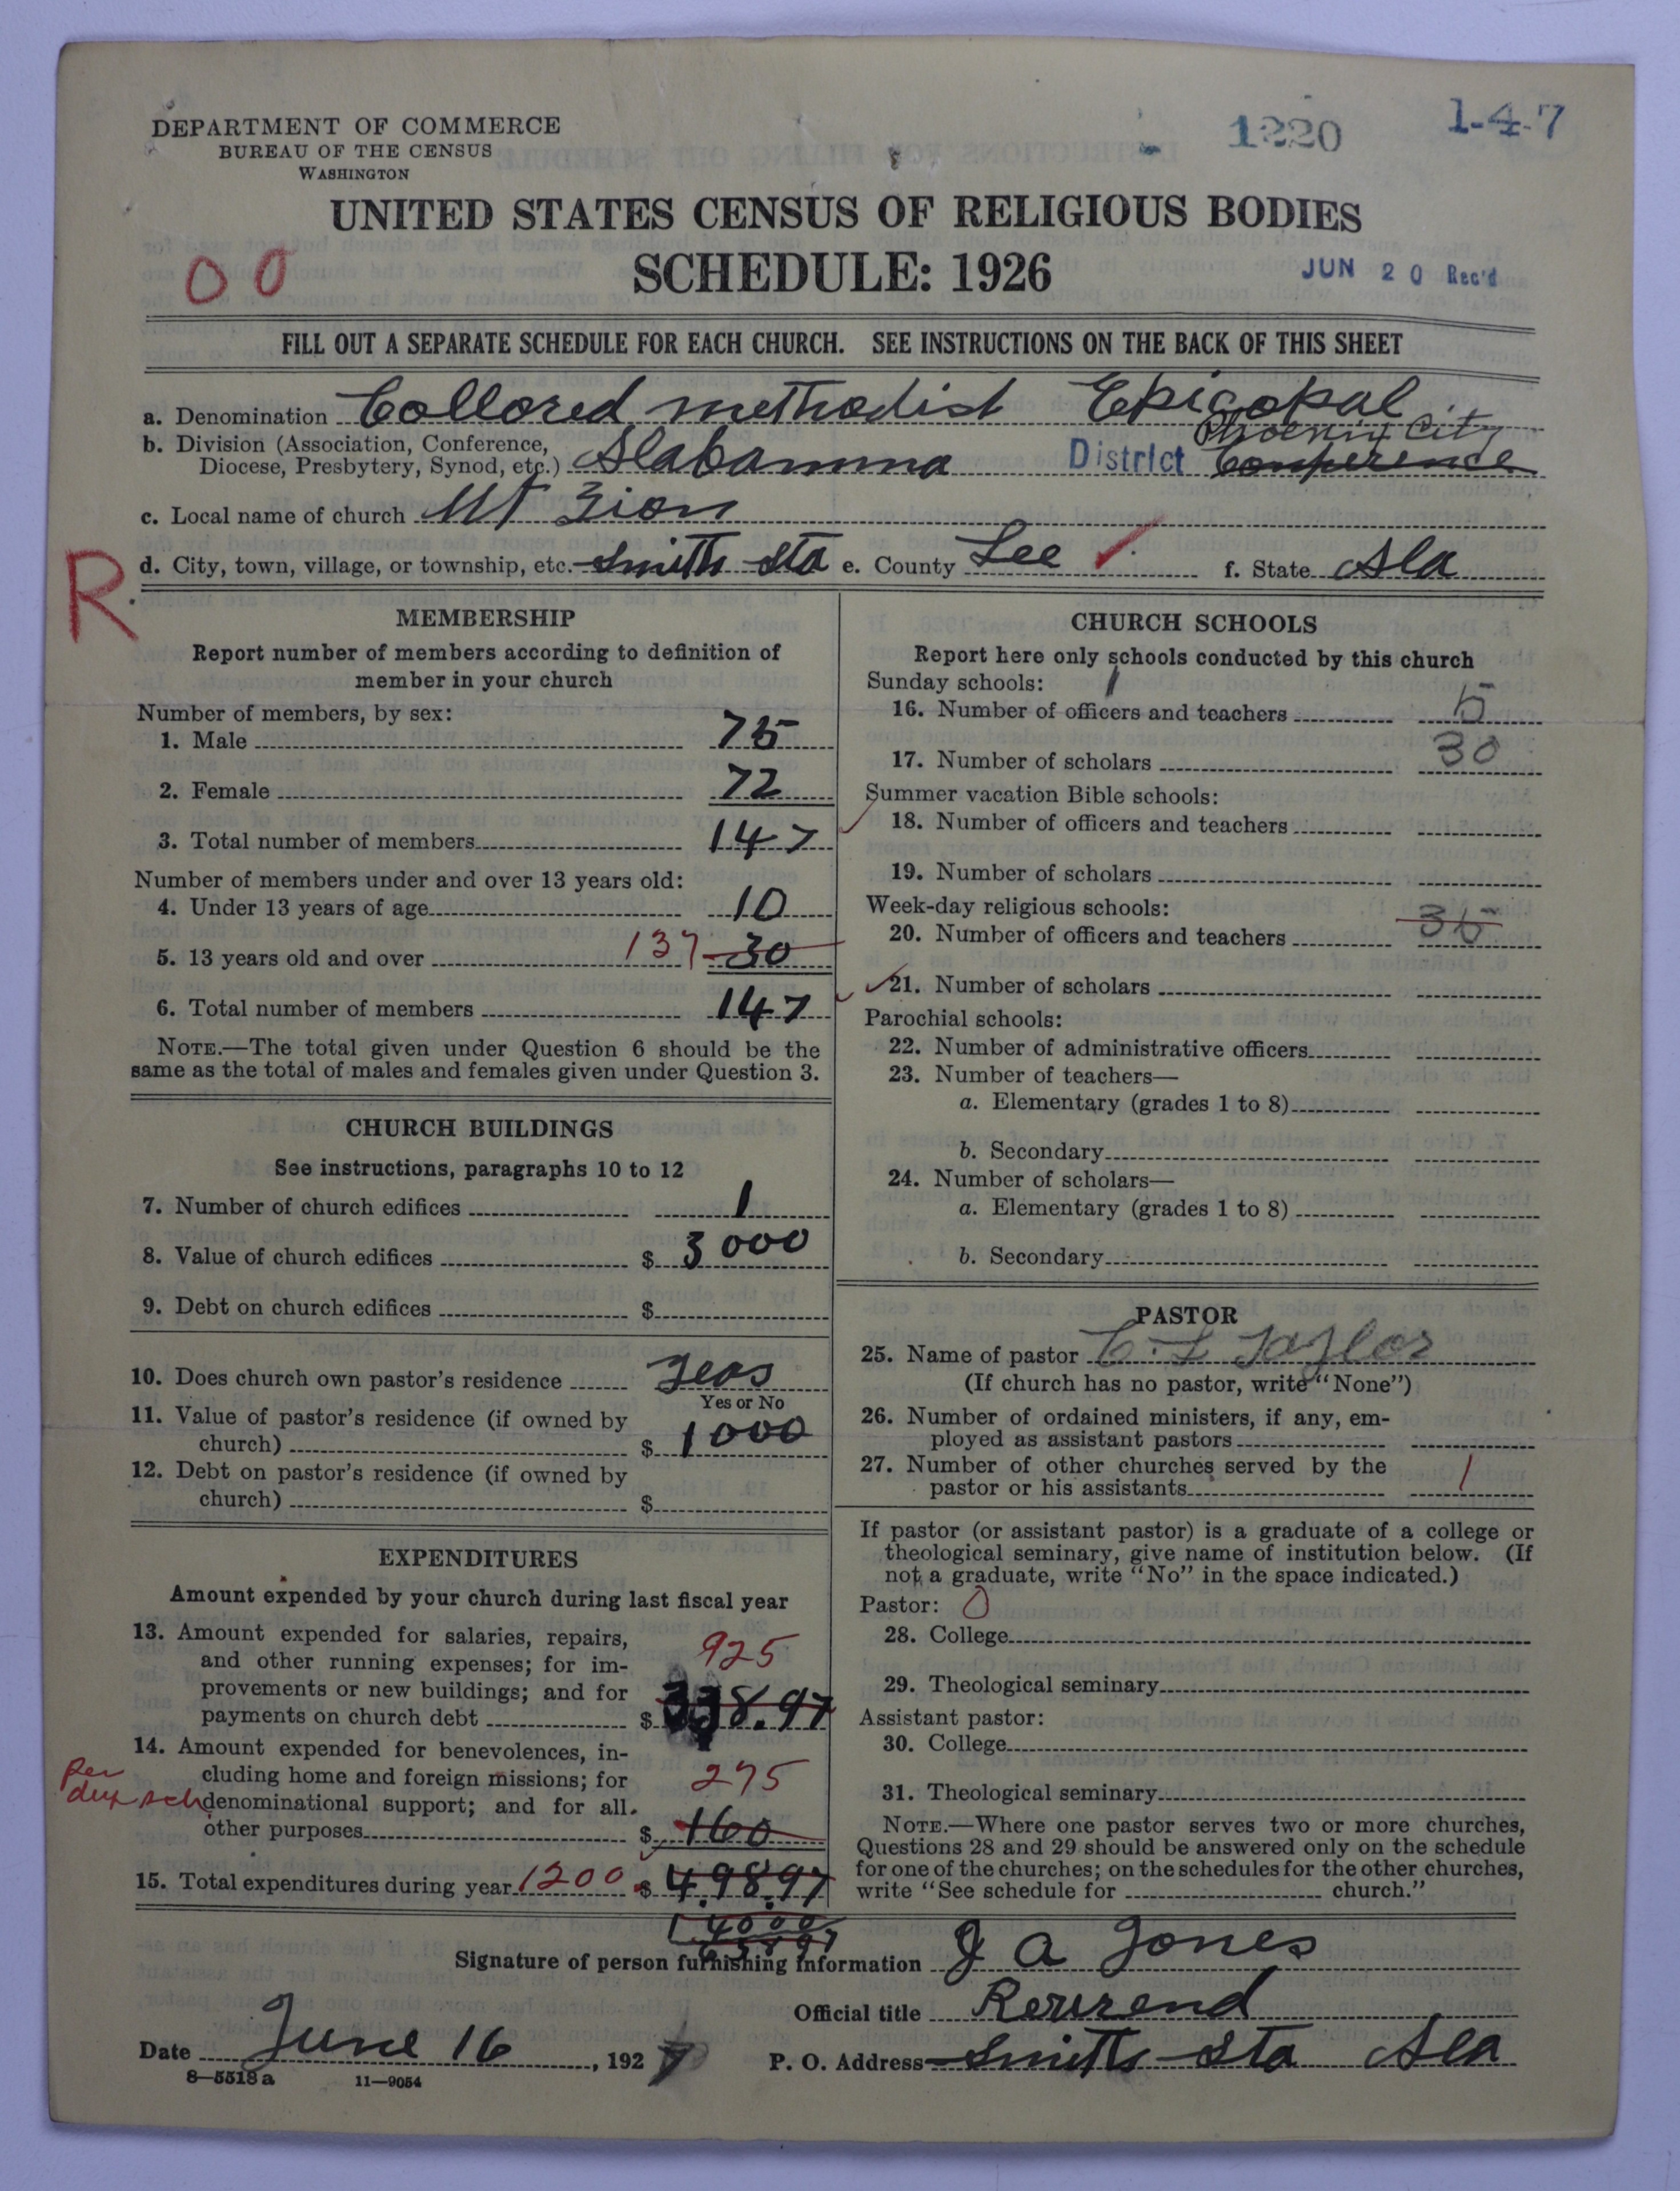 DEPARTMENT OF COMMERCE
BUREAU OF THE CENSUS
WASHINGTON
1220
1-4-7
UNITED STATES CENSUS OF RELIGIOUS BODIES
SCHEDULE: 1926
00
JUN 20 Rec'd
FILL OUT A SEPARATE SCHEDULE FOR EACH CHURCH. SEE INSTRUCTIONS ON THE BACK OF THIS SHEET
a. Denomination Collored methodist Epicopal
b. Division (Association, Conference, Diocese, Presbytery, Synod, etc.) Alabamma District Conference Phoenix City
c. Local name of church Mt Zion
R
d. City, town, village, or township, etc. Smiths Sta e. County Lee f. State Ala
MEMBERSHIP
Report number of members according to definition of
member in your church
Number of members, by sex:
1. Male 75
2. Female 72
3. Total number of members 147
Number of members under and over 13 years old:
4. Under 13 years of age 10
5. 13 years old and over 137 30
6. Total number of members 147
NOTE.—The total given under Question 6 should be the
same as the total of males and females given under Question 3.
CHURCH BUILDINGS
See instructions, paragraphs 10 to 12
7. Number of church edifices 1
8. Value of church edifices $ 3000
9. Debt on church edifices $
10. Does church own pastor's residence yeas
Yes or No
11. Value of pastor's residence (if owned by
church) $ 1000
12. Debt on pastor's residence (if owned by
church) $
EXPENDITURES
Amount expended by your church during last fiscal year
13. Amount expended for salaries, repairs,
and other running expenses; for im-
provements or new buildings; and for
payments on church debt $ 338.97
925
14. Amount expended for benevolences, in-
cluding home and foreign missions; for
denominational support; and for all
other purposes $ 160
275
per
dup sch
15. Total expenditures during year 1200 $ 498.97
4000
CHURCH SCHOOLS
Report here only schools conducted by this church
Sunday schools: 1
16. Number of officers and teachers 5
17. Number of scholars 30
Summer vacation Bible schools:
18. Number of officers and teachers
19. Number of scholars
Week-day religious schools:
20. Number of officers and teachers 35
21. Number of scholars
Parochial schools:
22. Number of administrative officers
23. Number of teachers—
a. Elementary (grades 1 to 8)
b. Secondary
24. Number of scholars—
a. Elementary (grades 1 to 8)
b. Secondary
PASTOR
25. Name of pastor C. L Taylor
(If church has no pastor, write "None")
26. Number of ordained ministers, if any, em-
ployed as assistant pastors
27. Number of other churches served by the
pastor or his assistants 1
If pastor (or assistant pastor) is a graduate of a college or
theological seminary, give name of institution below. (If
not a graduate, write "No" in the space indicated.)
Pastor: 0
28. College
29. Theological seminary
Assistant pastor:
30. College
31. Theological seminary
NOTE.—Where one pastor serves two or more churches,
Questions 28 and 29 should be answered only on the schedule
for one of the churches; on the schedules for the other churches,
write "See schedule for church."
Signature of person furnishing information J A Jones
Official title Reverend
Date June 16, 1927
P. O. Address Smiths Sta Ala
8—5518a 11—9054